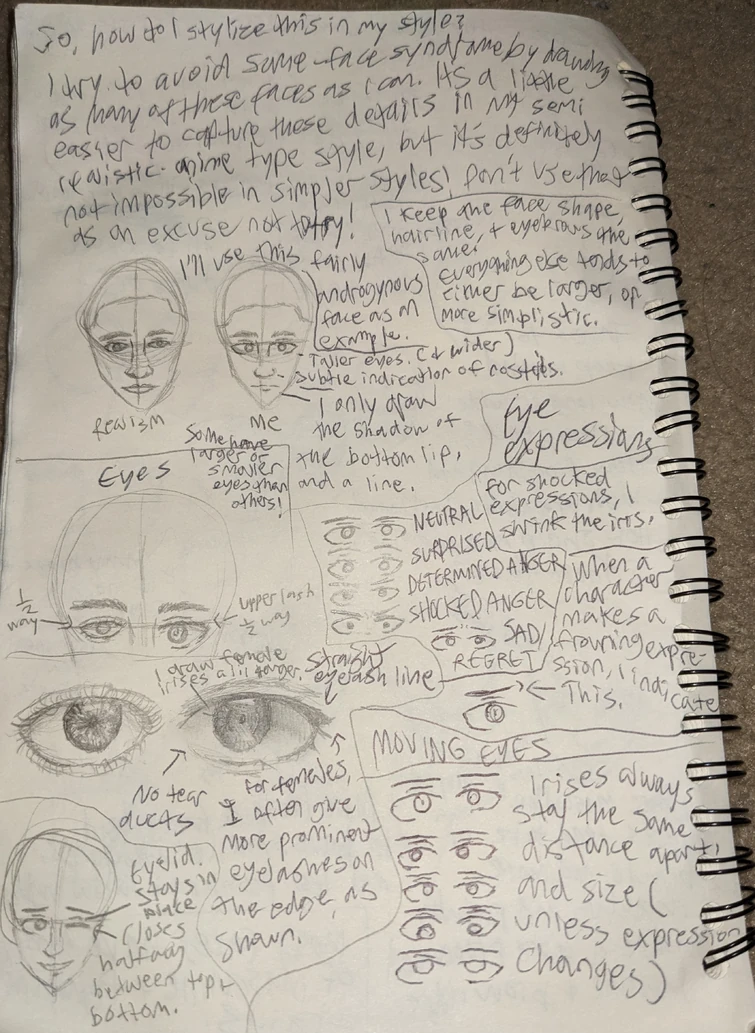 So, how do I stylize this in my style?
I try to avoid same-face syndrome by drawing
as many of these faces as I can. It's a little
easier to capture these details in my semi
realistic-anime type style, but it's definitely
not impossible in simpler styles! Don't use that
as an excuse not to try!
I keep the face shape,
hairline, + eyebrows the
same.
Everything else tends to
either be larger, or
more simplistic.
I'll use this fairly
androgynous
face as an
example.
- Taller eyes. (+ wider)
- subtle indication of nostrils.
I only draw
the shadow of
the bottom lip,
and a line.
Realism
Me
Eyes
Some have
larger or
smaller
eyes than
others!
1/2
way
upper lash
1/2 way
Eye
expressions
for shocked
expressions, I
shrink the iris.
NEUTRAL
SURPRISED
DETERMINED ANGER
SHOCKED ANGER
SAD/
REGRET
When a
character
makes a
frowning expre-
ssion, I indicate
This.
I draw female
irises a lil larger.
straight
eyelash line
No tear
ducts
for females,
I often give
more prominent
eyelashes on
the edge, as
shown.
Eyelid
stays in
place
closes
halfway
between top +
bottom.
MOVING EYES
Irises always
stay the same
distance apart,
and size (
unless expression
changes)